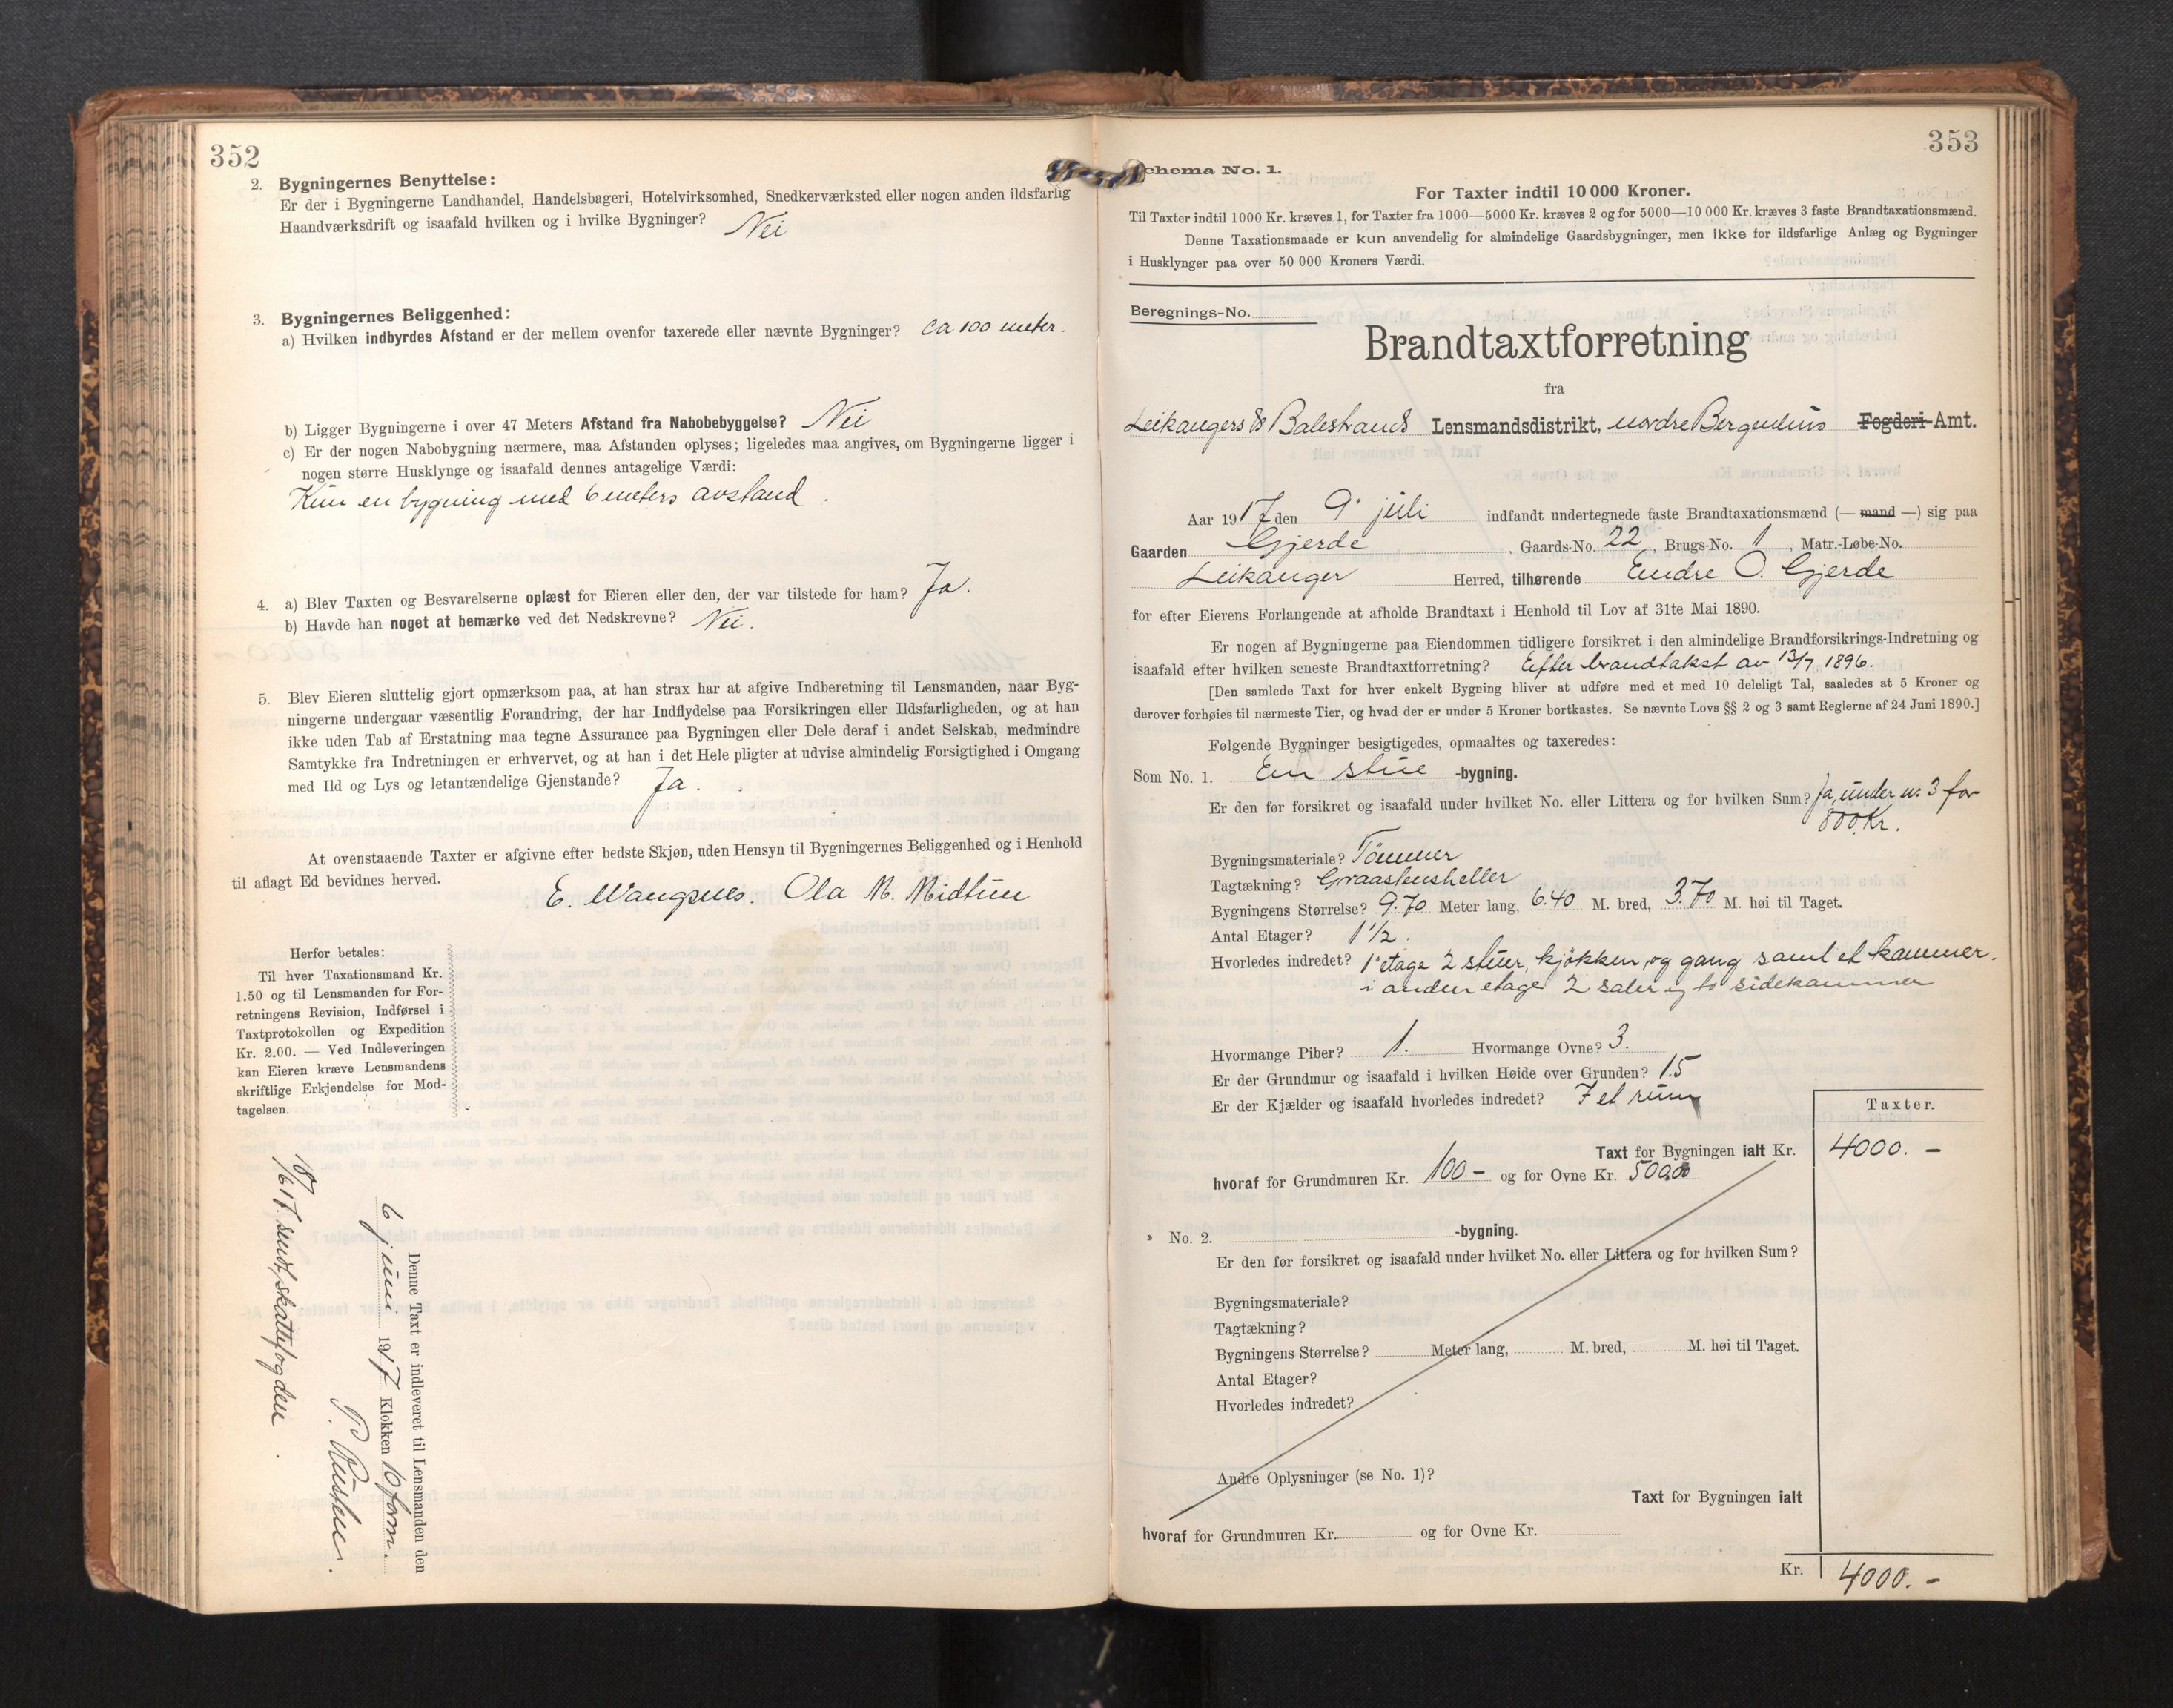 352
2. Bygningernes Benyttelse:
Er der i Bygningerne Landhandel, Handelsbageri, Hotelvirksomhed, Snedkerværksted eller nogen anden ildsfarlig
Haandværksdrift og isaafald hvilken og i hvilke Bygninger? Nei
3. Bygningernes Beliggenhed:
a) Hvilken indbyrdes Afstand er der mellem ovenfor taxerede eller nævnte Bygninger? ca 100 meter.
b) Ligger Bygningerne i over 47 Meters Afstand fra Nabobebyggelse? Nei
c) Er der nogen Nabobygning nærmere, maa Afstanden oplyses; ligeledes maa angives, om Bygningerne ligger i
nogen større Husklynge og isaafald dennes antagelige Værdi:
Kun en bygning med 6 meters avstand.
4. a) Blev Taxten og Besvarelserne oplæst for Eieren eller den, der var tilstede for ham? Ja.
b) Havde han noget at bemærke ved det Nedskrevne? Nei.
5. Blev Eieren sluttelig gjort opmærksom paa, at han strax har at afgive Indberetning til Lensmanden, naar Byg-
ningerne undergaar væsentlig Forandring, der har Indflydelse paa Forsikringen eller Ildsfarligheden, og at han
ikke uden Tab af Erstatning maa tegne Assurance paa Bygningen eller Dele deraf i andet Selskab, medmindre
Samtykke fra Indretningen er erhvervet, og at han i det Hele pligter at udvise almindelig Forsigtighed i Omgang
med Ild og Lys og letantændelige Gjenstande? Ja.
At ovenstaaende Taxter er afgivne efter bedste Skjøn, uden Hensyn til Bygningernes Beliggenhed og i Henhold
til aflagt Ed bevidnes herved.
E. Wangsnes. Ola M. Midtun
Herfor betales:
Til hver Taxationsmand Kr.
1.50 og til Lensmanden for For-
retningens Revision, Indførsel i
Taxtprotokollen og Expedition
Kr. 2.00. — Ved Indleveringen
kan Eieren kræve Lensmandens
skriftlige Erkjendelse for Mod-
tagelsen.
Denne Taxt er indleveret til Lensmanden den
6 juni 1917 Klokken 10 form.
sendt skattefogden.
353
Schema No. 1.
For Taxter indtil 10 000 Kroner.
Til Taxter indtil 1000 Kr. kræves 1, for Taxter fra 1000—5000 Kr. kræves 2 og for 5000—10 000 Kr. kræves 3 faste Brandtaxationsmænd.
Denne Taxationsmaade er kun anvendelig for almindelige Gaardsbygninger, men ikke for ildsfarlige Anlæg og Bygninger
i Husklynger paa over 50 000 Kroners Værdi.
Beregnings-No.
Brandtaxtforretning
fra
Leikangers & Balestrands Lensmandsdistrikt, nordre Bergenhus Fogderi-Amt.
Aar 1917 den 9. juli indfandt undertegnede faste Brandtaxationsmænd (— mand —) sig paa
Gaarden Gjerde, Gaards-No. 22, Brugs-No. 1, Matr.-Løbe-No.
Leikanger Herred, tilhørende Endre O. Gjerde
for efter Eierens Forlangende at afholde Brandtaxt i Henhold til Lov af 31te Mai 1890.
Er nogen af Bygningerne paa Eiendommen tidligere forsikret i den almindelige Brandforsikrings-Indretning og
isaafald efter hvilken seneste Brandtaxtforretning? Efter brandtakst av 13/7 1896.
[Den samlede Taxt for hver enkelt Bygning bliver at udføre med et med 10 deleligt Tal, saaledes at 5 Kroner og
derover forhøies til nærmeste Tier, og hvad der er under 5 Kroner bortkastes. Se nævnte Lovs §§ 2 og 3 samt Reglerne af 24 Juni 1890.]
Følgende Bygninger besigtigedes, opmaaltes og taxeredes:
Som No. 1. En stue -bygning.
Er den før forsikret og isaafald under hvilket No. eller Littera og for hvilken Sum? Ja, under nr 3 for
800 Kr.
Bygningsmateriale? Tömmer
Tagtækning? Graastensheller
Bygningens Størrelse? 9.70 Meter lang, 6.40 M. bred, 3.70 M. høi til Taget.
Antal Etager? 1 1/2.
Hvorledes indredet? 1' etage 2 stuer, kjøkken, og gang samt et kammer.
i anden etage 2 saler og to sidekammer
Hvormange Piber? 1. Hvormange Ovne? 3.
Er der Grundmur og isaafald i hvilken Høide over Grunden? 1.5
Er der Kjælder og isaafald hvorledes indredet? I et rum
Taxter.
Taxt for Bygningen ialt Kr. 4000. -
hvoraf for Grundmuren Kr. 100.- og for Ovne Kr. 500.00
» No. 2. -bygning.
Er den før forsikret og isaafald under hvilket No. eller Littera og for hvilken Sum?
Bygningsmateriale?
Tagtækning?
Bygningens Størrelse? Meter lang, M. bred, M. høi til Taget.
Antal Etager?
Hvorledes indredet?
Andre Oplysninger (se No. 1)?
Taxt for Bygningen ialt
hvoraf for Grundmuren Kr. og for Ovne Kr.
Kr. 4000. -